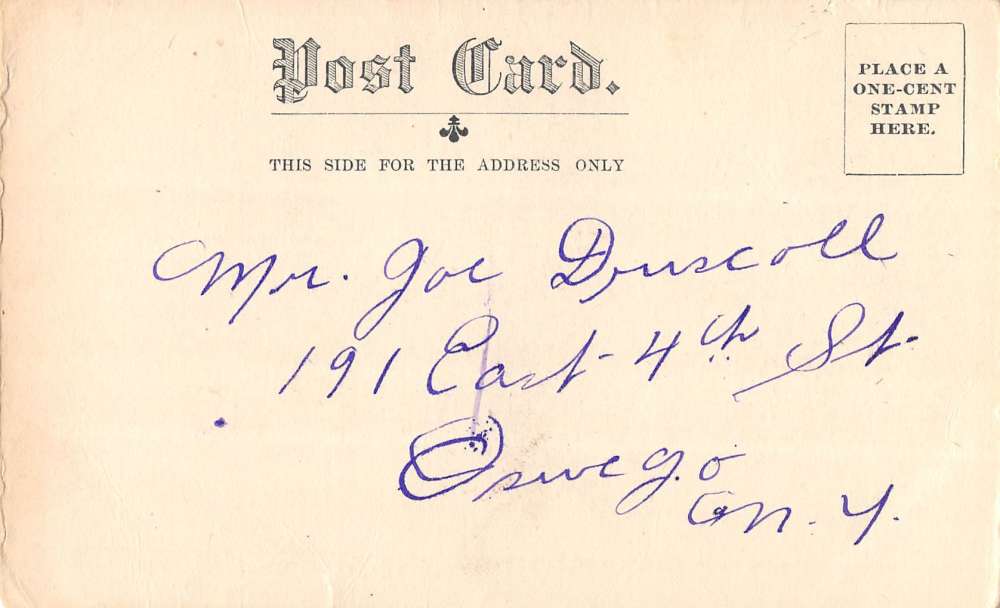 Post Card.
THIS SIDE FOR THE ADDRESS ONLY
PLACE A
ONE-CENT
STAMP
HERE.
Mr. Joe Driscoll
191 East 4th St.
Oswego
N. Y.